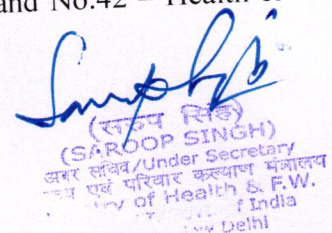 and No.42 – Health
(सरूप सिंह)
(SAROOP SINGH)
अवर सचिव/Under Secretary
एवं परिवार कल्याण मंत्रालय
of Health & F.W.
of India
Delhi